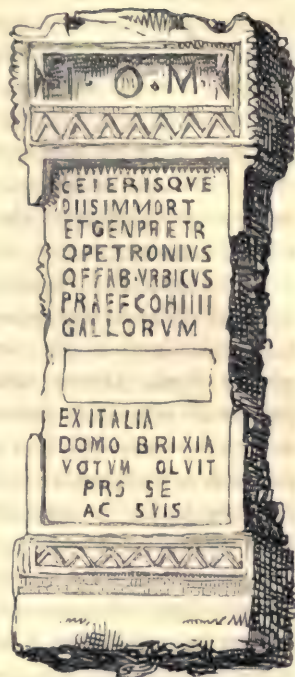 I·O·M·
CETERISQVE
DIISIMMORT
ETGENPRETR
QPETRONIVS
QFFAB·VRBICVS
PRAEFCOHIIII
GALLORVM
EX ITALIA
DOMO BRIXIA
VOTVM OLVIT
PRO SE
AC SVIS